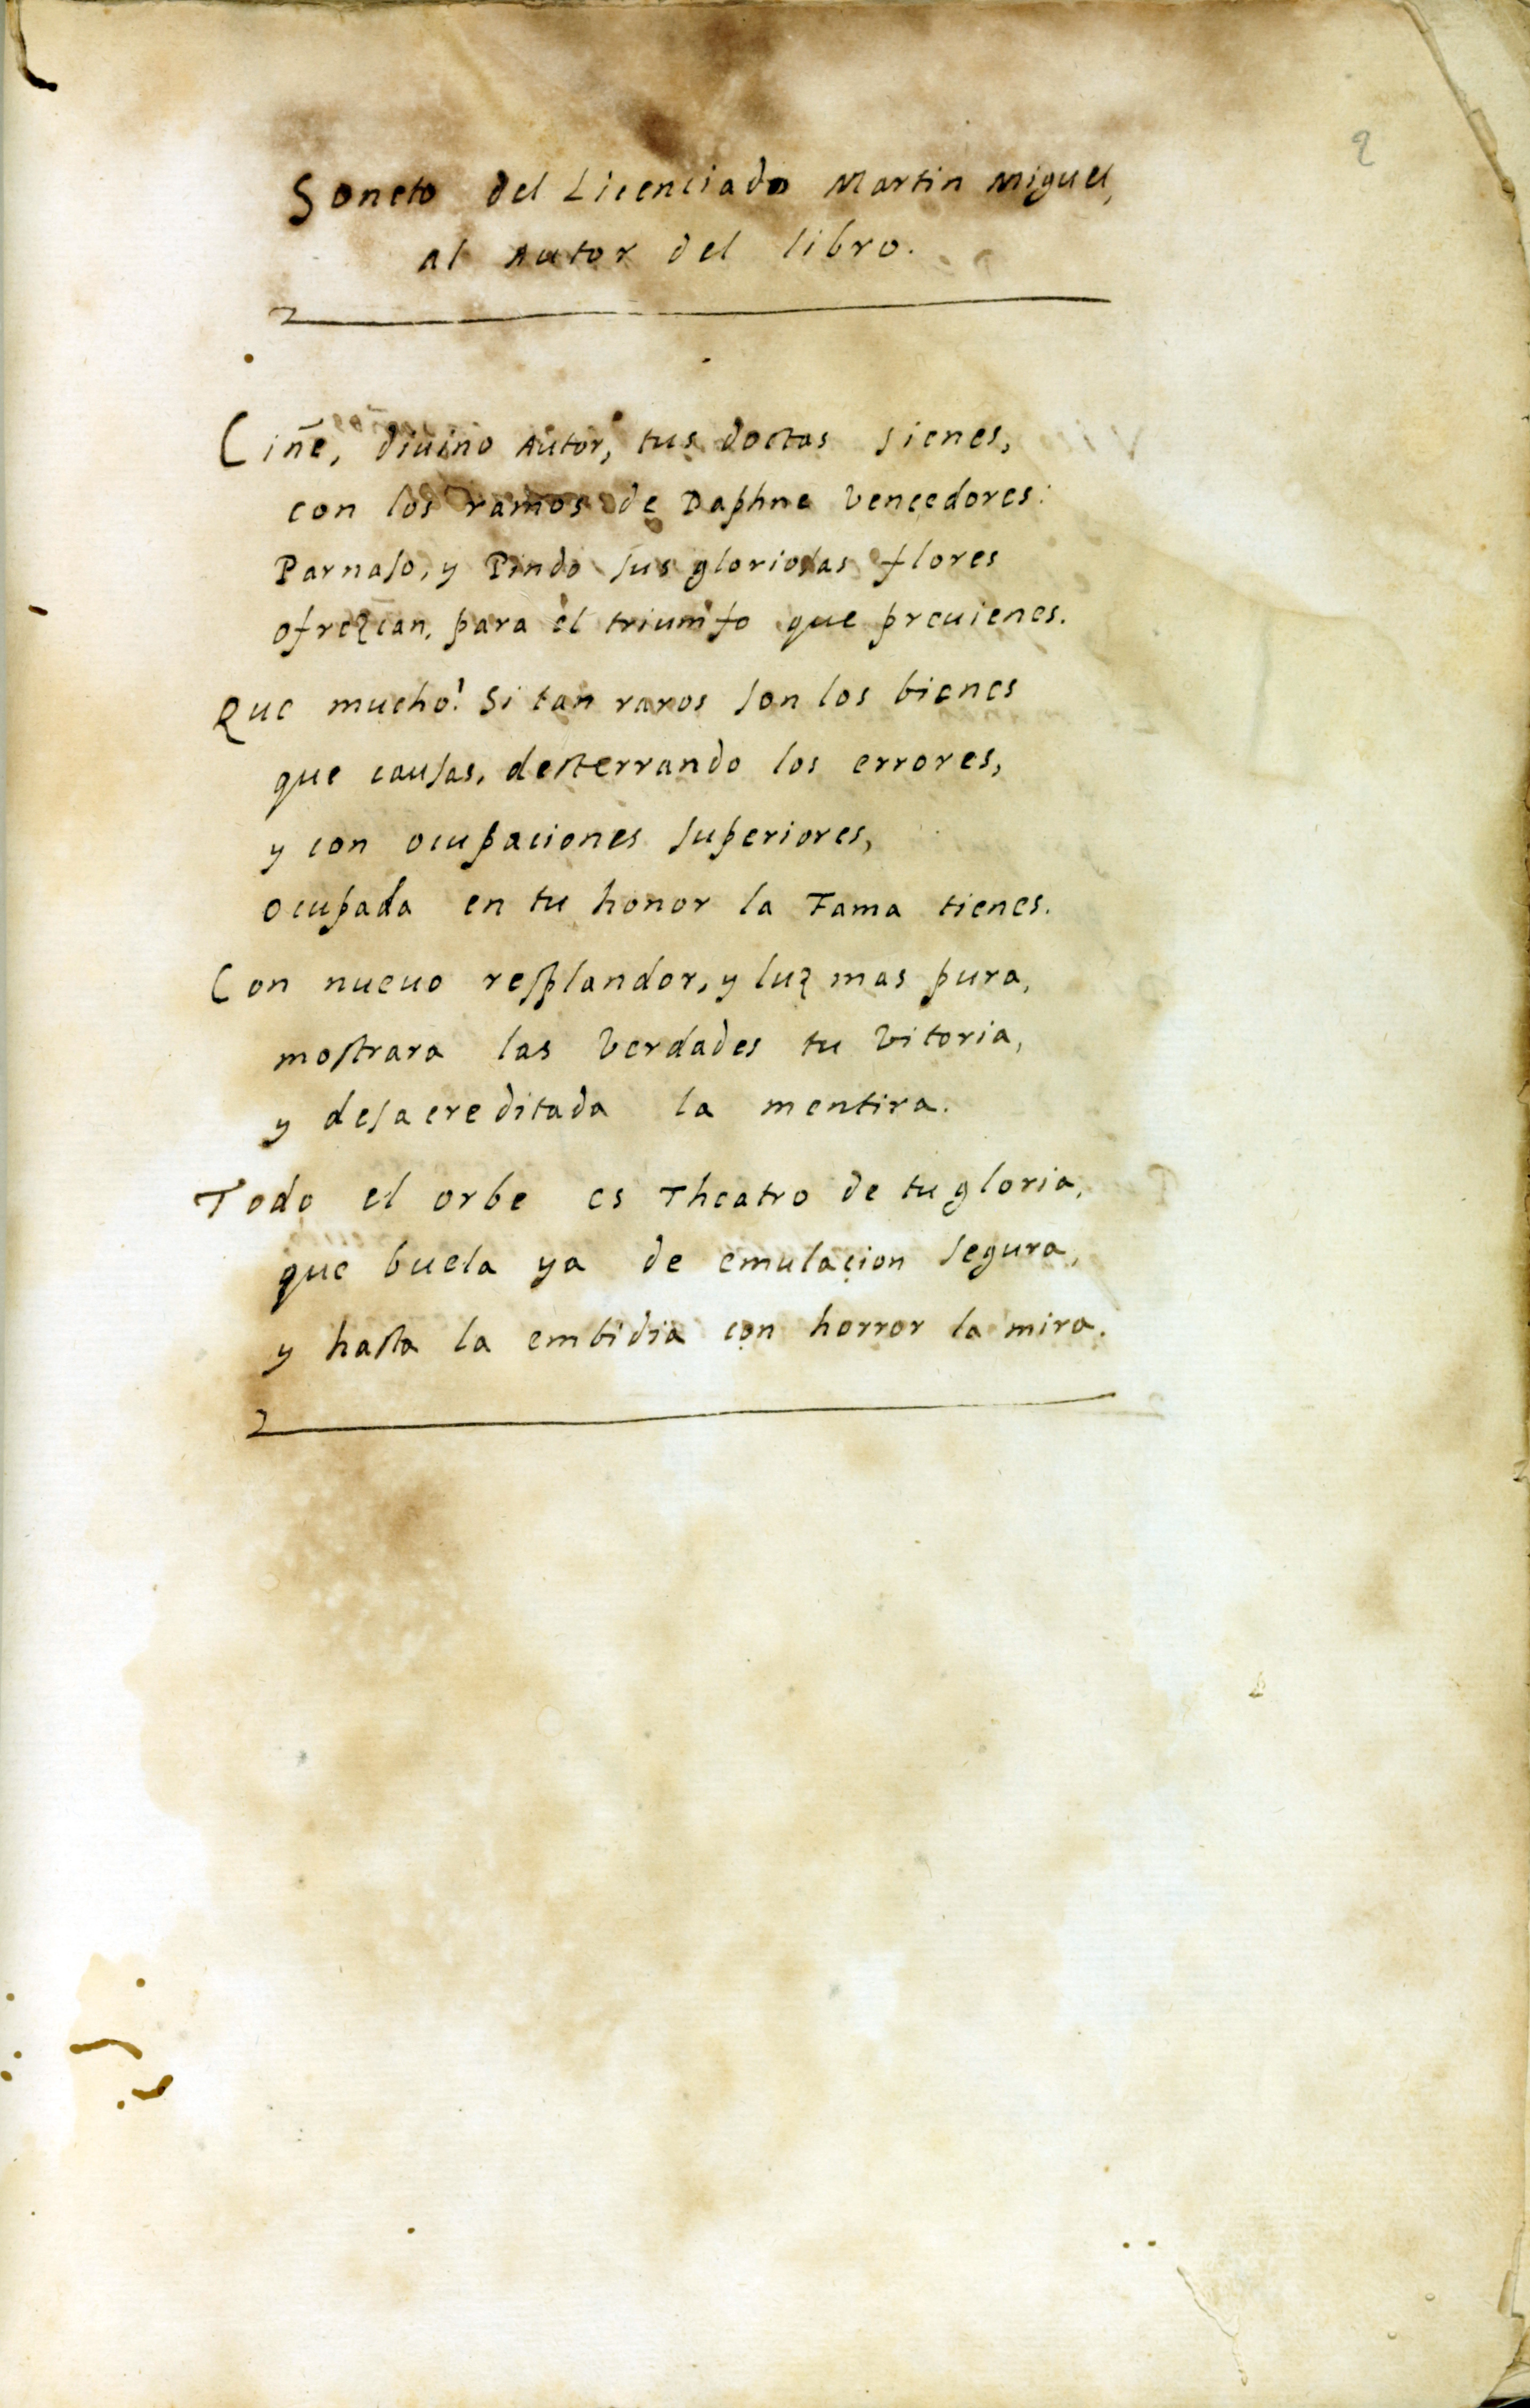 2
Soneto del Licenciado Martin Miguel,
al Autor del libro.
Ciñe, diuino Autor, tus doctas sienes,
con los ramos de Daphne vençedores:
Parnaso, y Pindo sus gloriosas flores
ofrezcan, para el triumfo que preuienes.
Que mucho! Si tan raros son los bienes
que causas, desterrando los errores,
y con ocupaciones superiores,
ocupada en tu honor la Fama tienes.
Con nueuo resplandor, y luz mas pura,
mostrara las verdades tu vitoria,
y desacreditada la mentira.
Todo el orbe es Theatro de tu gloria,
que buela ya de emulaçion segura,
y hasta la embidia con horror la mira.